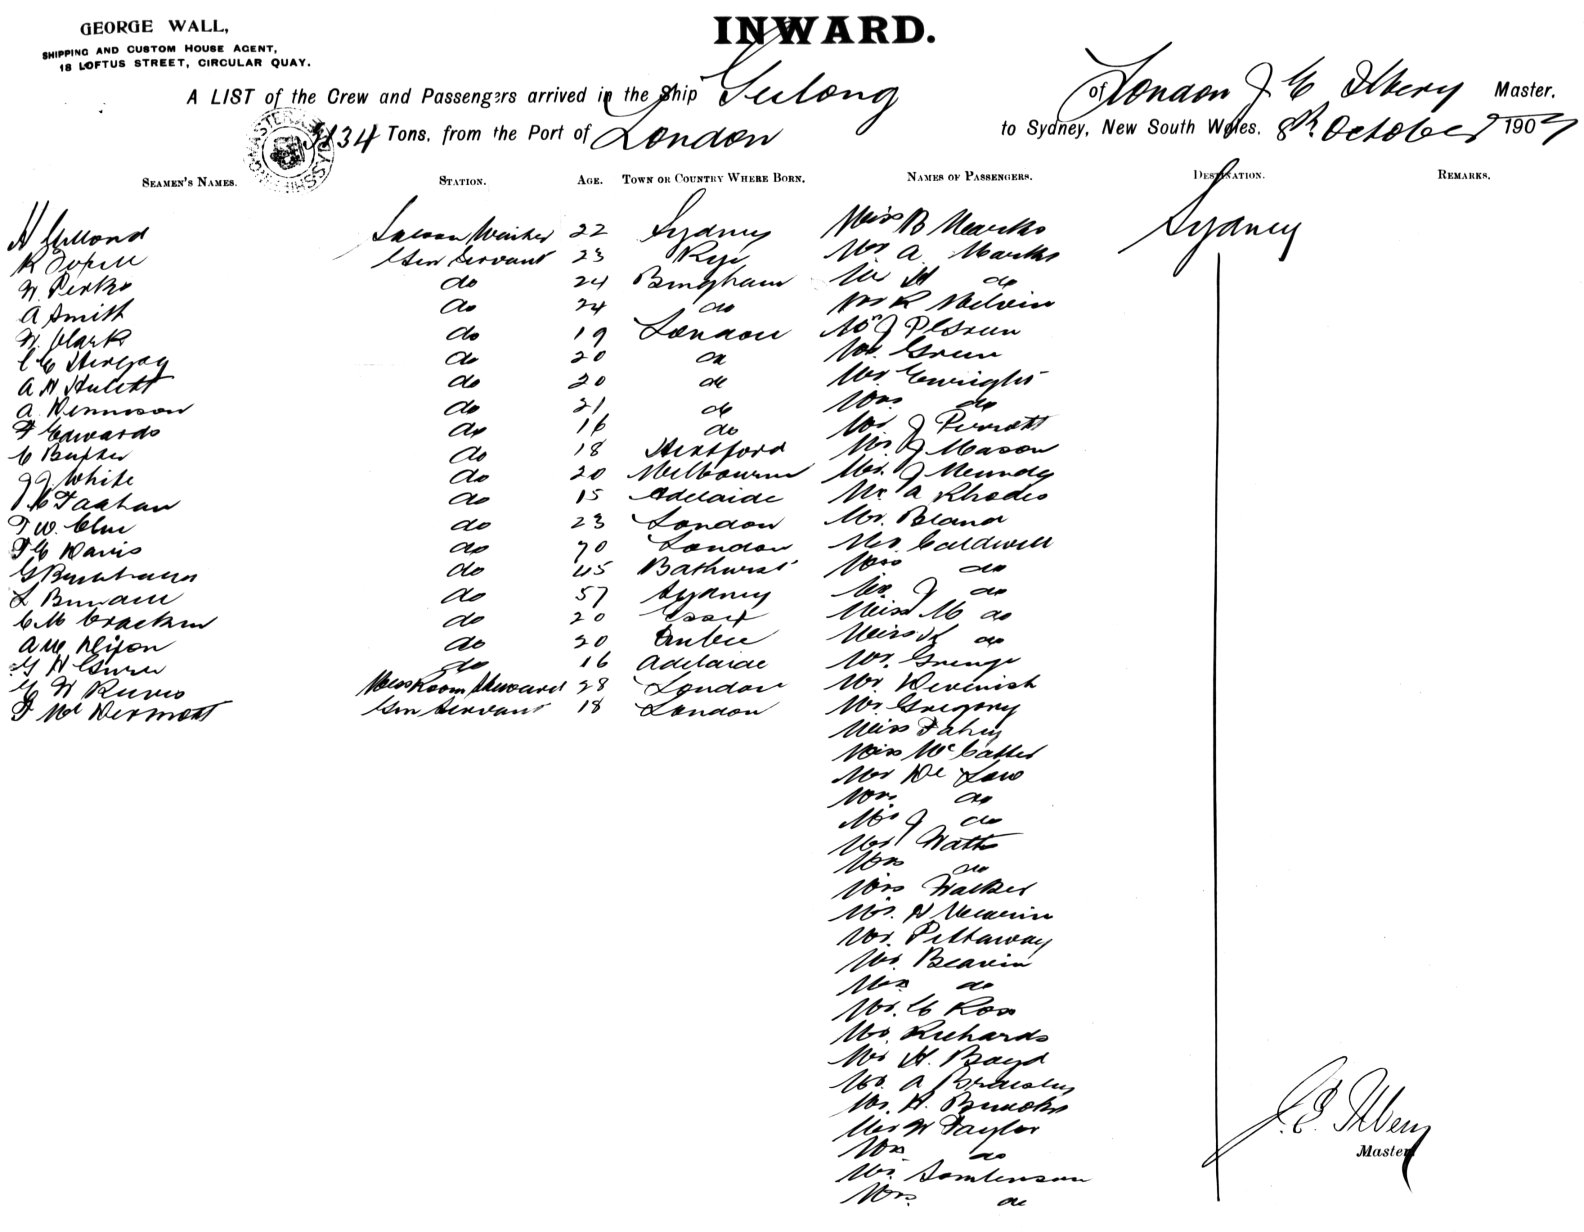 GEORGE WALL,
SHIPPING AND CUSTOM HOUSE AGENT,
18 LOFTUS STREET, CIRCULAR QUAY.
INWARD.
A LIST of the Crew and Passengers arrived in the Ship Geelong of London J E Ilbery Master,
Tons, from the Port of London to Sydney, New South Wales, 8th October 190
SEAMEN'S NAMES. STATION. AGE. TOWN OR COUNTRY WHERE BORN. NAMES OF PASSENGERS. DESTINATION. REMARKS.
H 22 Sydney Miss B Marks Sydney
R Gen Servant 23 Rye Mr A Marks
W. Perks do 24 Bingham Mr H do
A Smith do 24 do Mr R Melvin
W. Clark do 19 London Mr J P Green
do 20 do Mr. Green
A H Hulett do 20 do Mr. Enright
A. Dennison do 21 do Mrs. do
F Edwards do 16 do Mr. J Perrott
do 18 Hertford Mr. J Mason
J J White do 20 Melbourne Mr. J Mundy
do 15 Adelaide Mr. A Rhodes
F W. Clue do 23 London Mr. Bland
F E Davis do 20 London Mr. Caldwell
G do 45 Bathurst Mrs do
L do 57 Sydney Mr. J do
do 20 Essex Miss M do
Dixon do 20 Miss do
G H do 16 Adelaide Mr. Grange
W Reeves Mess Room Steward 28 London Mr. Devenish
F McDermott Gen Servant 18 London Mr. Gregory
Miss Fahey
Miss
Mr De Law
Mrs do
J do
Mr Watts
Mrs do
Mrs Walker
Mr. H
Mr. Pettaway
Mr. Beavin
Mrs do
Mr. C Ross
Mr. Richards
Mr H. Boyd
Mr. A
Mr. H. Brooks
Mr W Taylor
Mrs. do
Mr. Tomlinson
Mrs. do
J. E. Ilbery
Master.